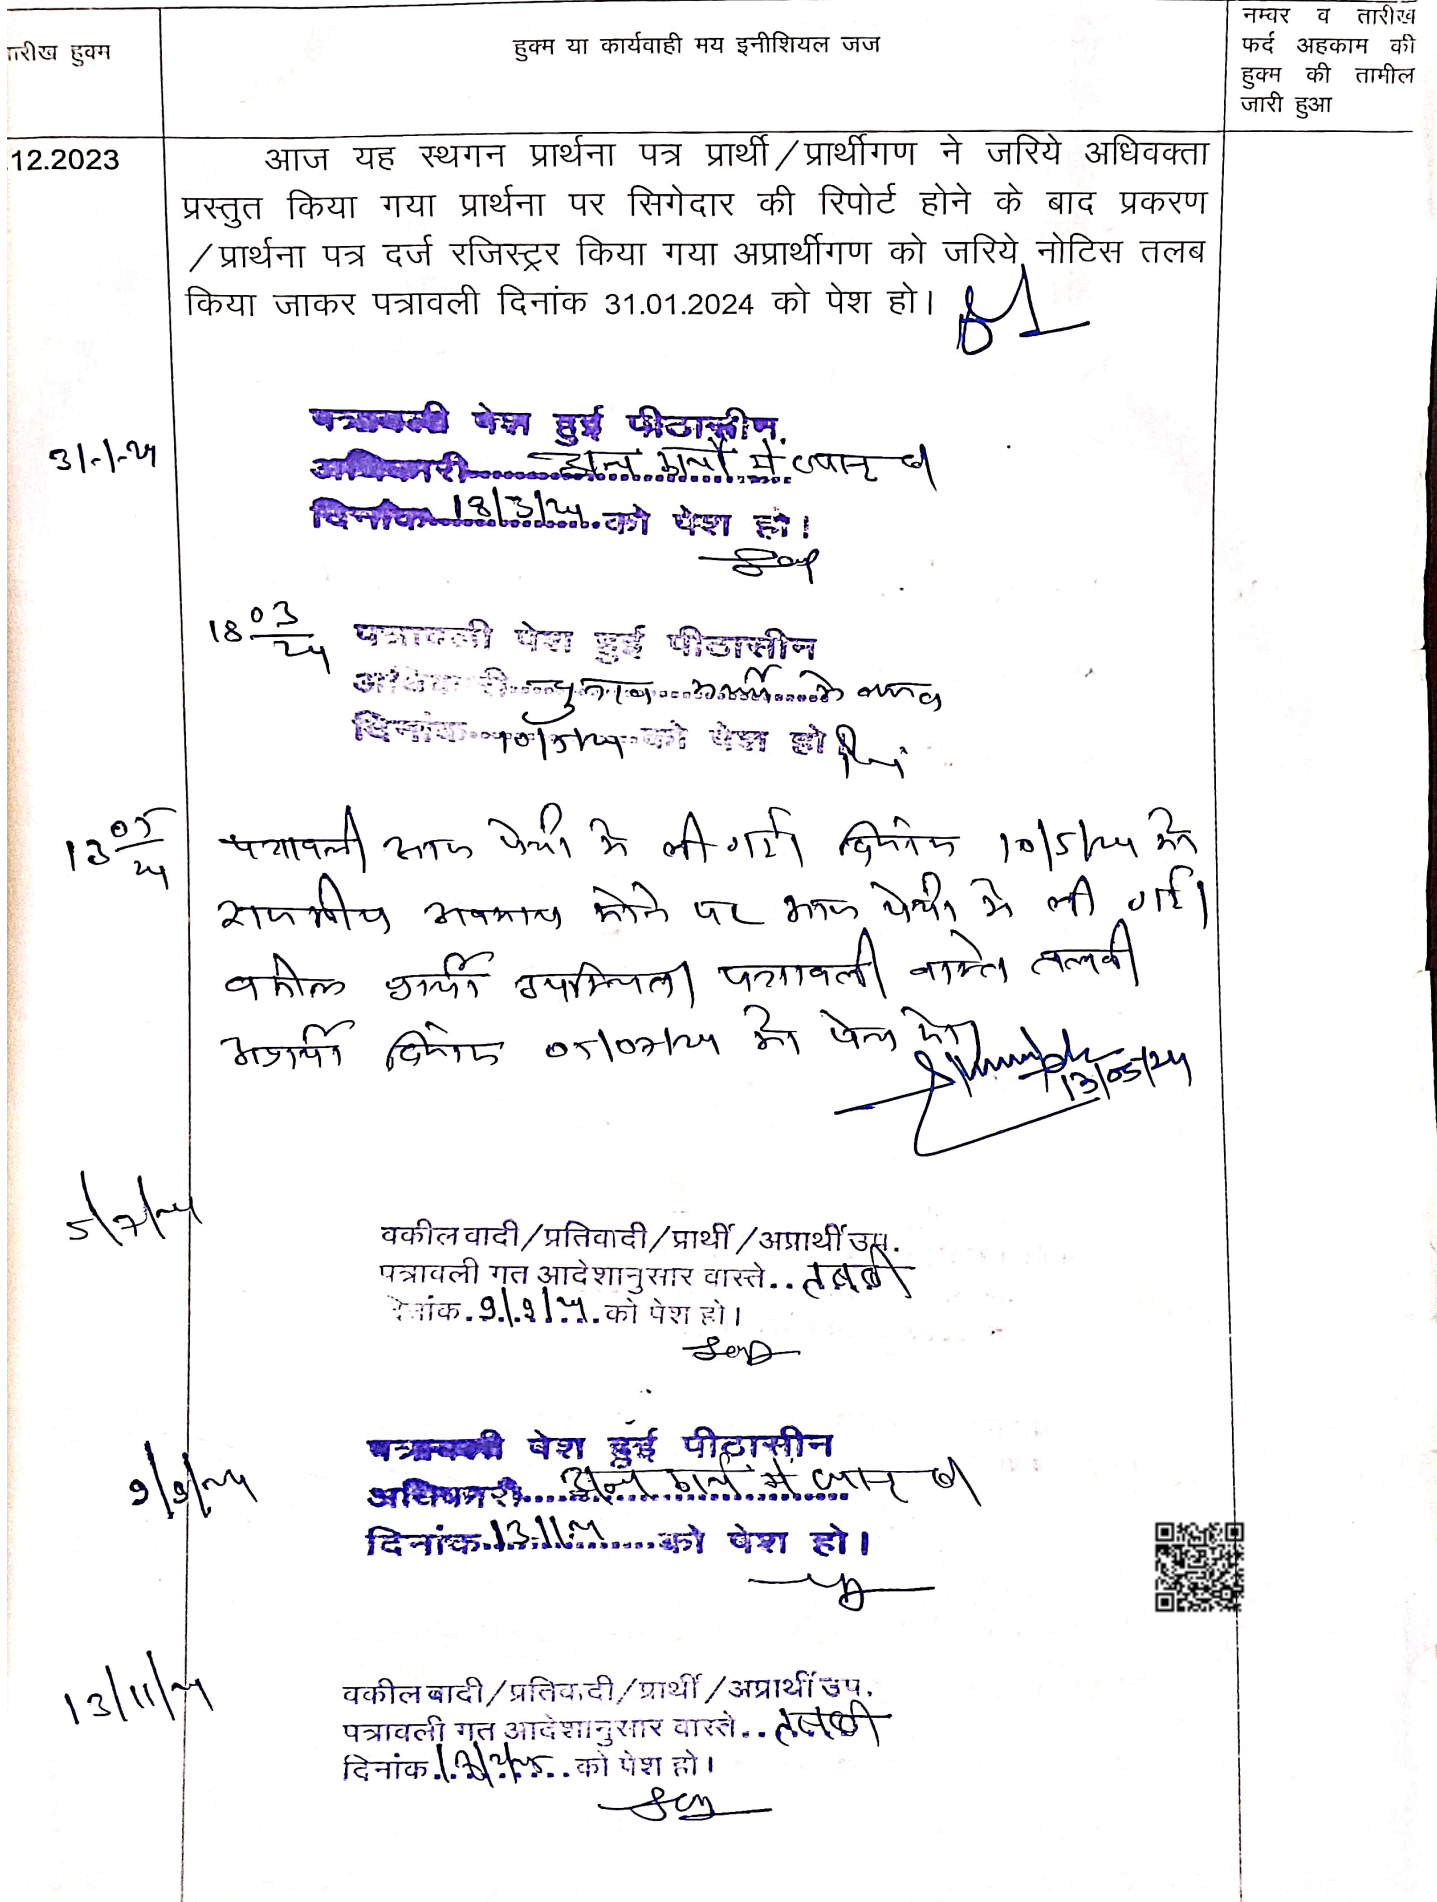 तारीख हुक्म
हुक्म या कार्यवाही मय इनीशियल जज
नम्वर व तारीख
फर्द अहकाम की
हुक्म की तामील
जारी हुआ
.12.2023
आज यह स्थगन प्रार्थना पत्र प्रार्थी/प्रार्थीगण ने जरिये अधिवक्ता
प्रस्तुत किया गया प्रार्थना पर सिगेदार की रिपोर्ट होने के बाद प्रकरण
/प्रार्थना पत्र दर्ज रजिस्ट्रर किया गया अप्रार्थीगण को जरिये नोटिस तलब
किया जाकर पत्रावली दिनांक 31.01.2024 को पेश हो।
31-1-24
पत्रावली पेश हुई पीठासीन
अधिकारी अन्य कार्यो में व्यस्त
दिनांक 18/3/24 को पेश हो।
18 03/24
पत्रावली पेश हुई पीठासीन
अधिकारी चुनाव कार्य में व्यस्त
दिनांक 10/5/24 को पेश हो
13 05/24
पत्रावली आज पेशी में ली गई। दिनांक 10/5/24 को
राजकीय अवकाश होने पर आज पेशी में ली गई।
वकील प्रार्थी उपस्थित। पत्रावली वास्ते तलबी
अप्रार्थी दिनांक 05/07/24 को पेश हो।
13/05/24
5/7/24
वकील वादी/प्रतिवादी/प्रार्थी/अप्रार्थी उप.
पत्रावली गत आदेशानुसार वास्ते.. तलबी
दिनांक. 9/9/24. को पेश हो।
9/9/24
पत्रावली पेश हुई पीठासीन
अधिकारी अन्य कार्य में व्यस्त
दिनांक 13.11.24 को पेश हो।
13/11/24
वकील वादी/प्रतिवादी/प्रार्थी/अप्रार्थी उप.
पत्रावली गत आदेशानुसार वास्ते.. तलबी
दिनांक. को पेश हो।